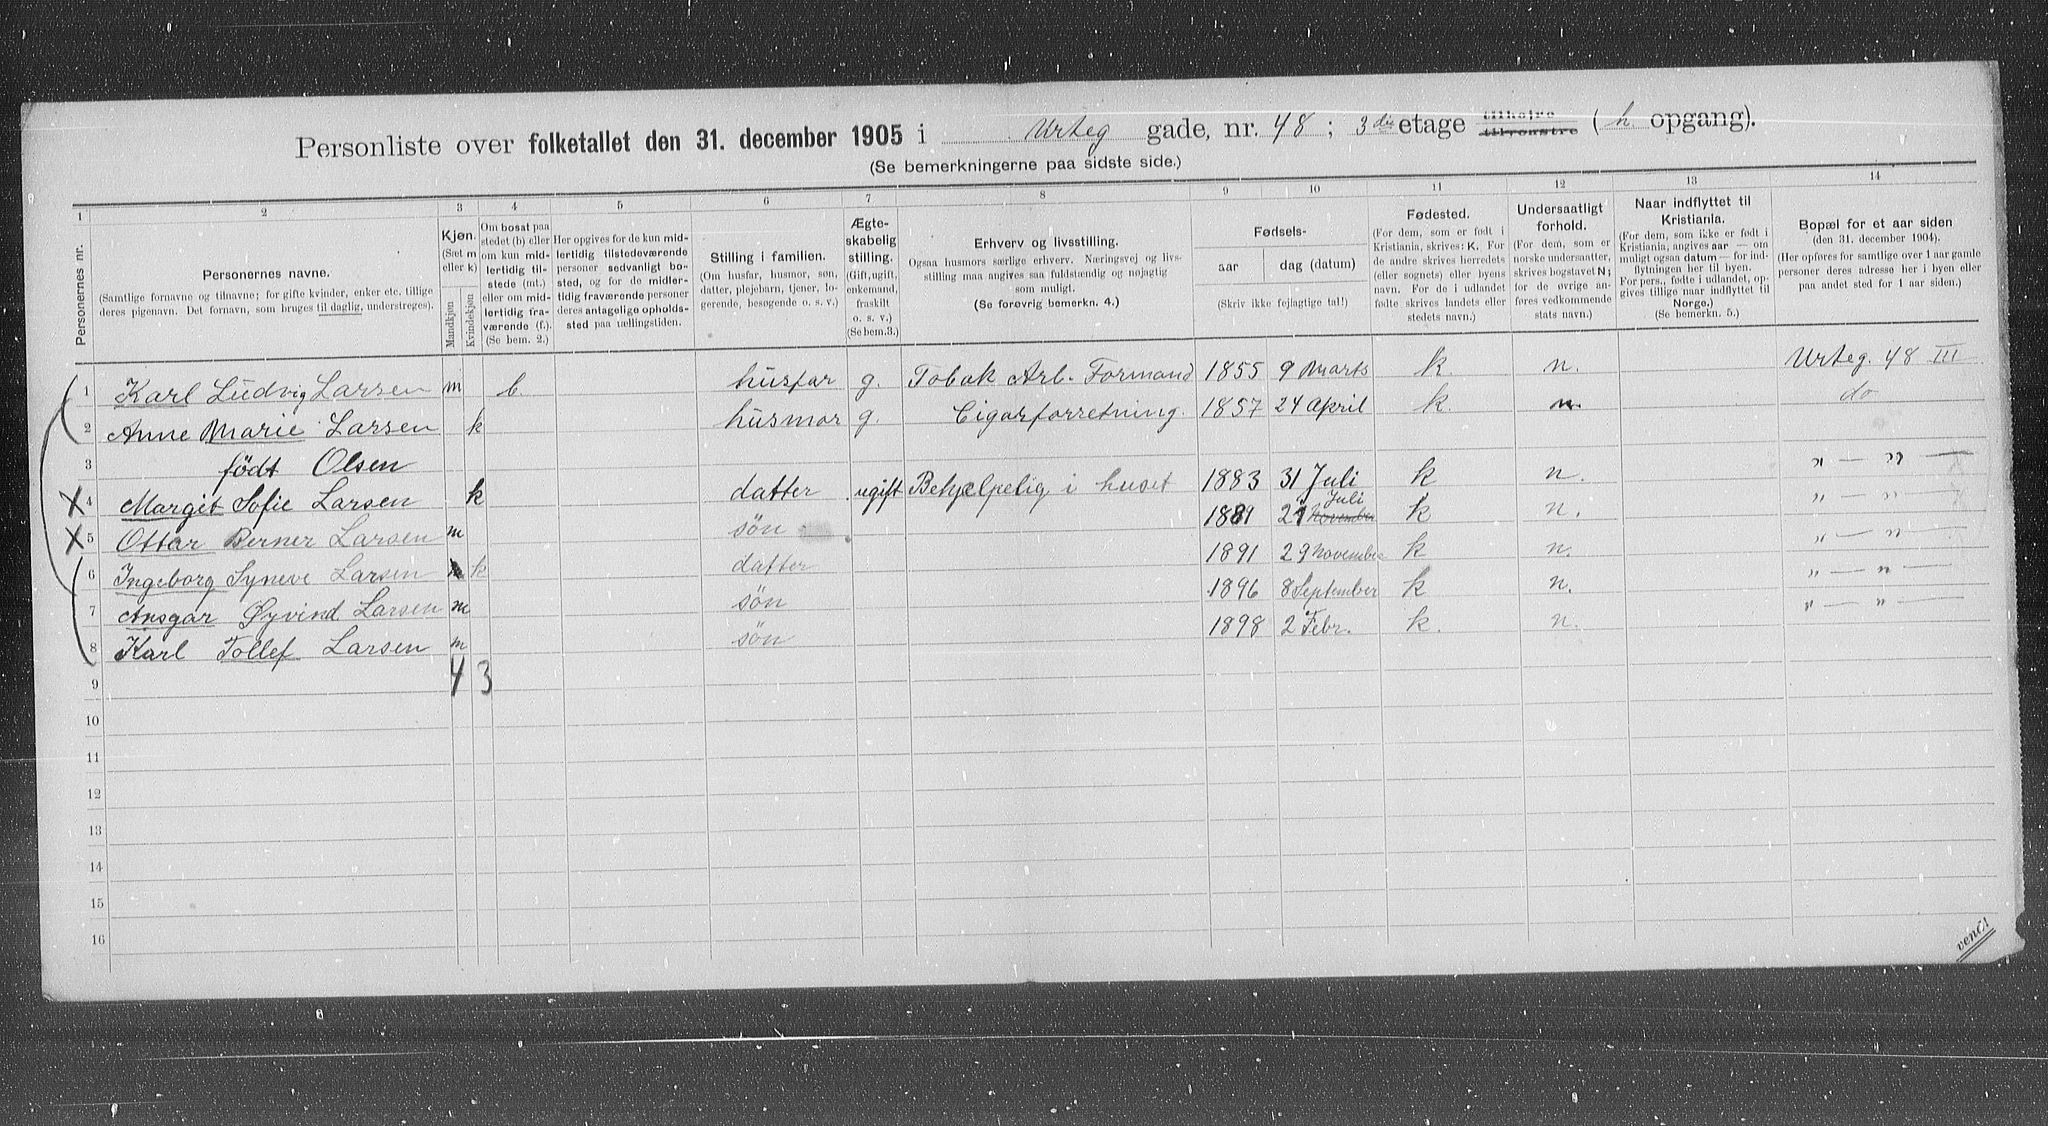 Personliste over folketallet den 31. december 1905 i Urteg gade, nr. 48; 3die etage tilhøjre tilvenstre (h. opgang).
(Se bemerkningerne paa sidste side.)
1 2 3 4 5 6 7 8 9 10 11 12 13 14
Personernes nr.
Personernes navne.
(Samtlige fornavne og tilnavne; for gifte kvinder, enker etc. tillige
deres pigenavn. Det fornavn, som bruges til daglig, understreges).
Kjøn.
(Sæt m
eller k)
Mandkjøn
Kvindekjøn
Om bosat paa
stedet (b) eller
om kun mid-
lertidig til-
stede (mt.)
eller om mid-
lertidig fra-
værende (f.).
(Se bem. 2.)
Her opgives for de kun mid-
lertidig tilstedeværende
personer sedvanlig bo-
sted, og for de midler-
tidig fraværende personer
deres antagelige opholds-
sted paa tællingstiden.
Stilling i familien.
(Om husfar, husmor, søn,
datter, plejebarn, tjener, lo-
gerende, besøgende o. s. v.)
Ægte-
skabelig
stilling.
(Gift, ugift,
enkemand,
fraskilt
o. s. v.)
(Se bem. 3.)
Erhverv og livsstilling.
Ogsaa husmors særlige erhverv. Næringsvej og livs-
stilling maa angives saa fuldstændig og nøjagtig
som muligt.
(Se forøvrig bemerkn. 4.)
Fødsels-
aar dag (datum)
(Skriv ikke fejlagtige tal!)
Fødested.
(For dem, som er født i
Kristiania, skrives: K. For
de andre skrives herredets
(eller sognets) eller byens
navn. For de i udlandet
fødte skrives landets eller
stedets navn.)
Undersaatligt
forhold.
(For dem, som er
norske undersaatter,
skrives bogstavet N;
for de øvrige an-
føres vedkommende
stats navn.)
Naar indflyttet til
Kristiania.
(For dem, som ikke er født i
Kristiania, angives aar — om
muligt ogsaa datum — for ind-
flytningen her til byen.
For pers., fødte i udlandet, op-
gives tillige naar indflyttet til
Norge.)
(Se bemerkn. 5.)
Bopæl for et aar siden
(den 31. december 1904).
(Her opføres for samtlige over 1 aar gamle
personer deres adresse her i byen eller
paa andet sted for 1 aar siden.)
1 Karl Ludvig Larsen m b. husfar g. Tobak Arb. Formand 1855 9 Marts k n. Urteg. 48 III
2 Anne Marie Larsen k husmor g. Cigarforretning. 1857 24 April k. n. do
3 födt Olsen
4 Margit Sofie Larsen k datter ugift Behjælpelig i huset 1883 31 Juli k n. " — " —
5 Ottar Berner Larsen m søn 1889 21 November Juli k n. " — " —
6 Ingeborg Syneve Larsen k datter 1891 29 November k n. " — " —
7 Ansgar Øyvind Larsen m søn 1896 8 September k n. " — " —
8 Karl Tollef Larsen m søn 1898 2 Febr. k. n. " — " —
4 3
9
10
11
12
13
14
15
16
vend!